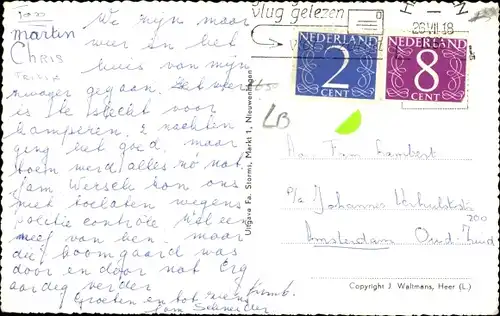 Toon
martin
Chris
We zijn maar
weer in het
huis van mijn
zwager gegaan. Het weer
is te slecht voor
kamperen. 2 nachten
ging het goed, maar
toen werd alles zó nat
Jam Wersch kon ons
niet toelaten wegens
politie controle
van ben. maar
die boomgaard was
door en door nat Erg
aardig verder
Groeten en tot ziens
Tom Schneider
vlug gelezen
28.VII.18
NEDERLAND
2
CENT
NEDERLAND
8
CENT
LB
Uitgave Fa. Storms, Markt 1, Nieuwenhagen
Aa. Fam Lambert
p/a Johannes Verhulststr
200
Amsterdam Oud-Zuid
Copyright J. Waltmans, Heer (L.)